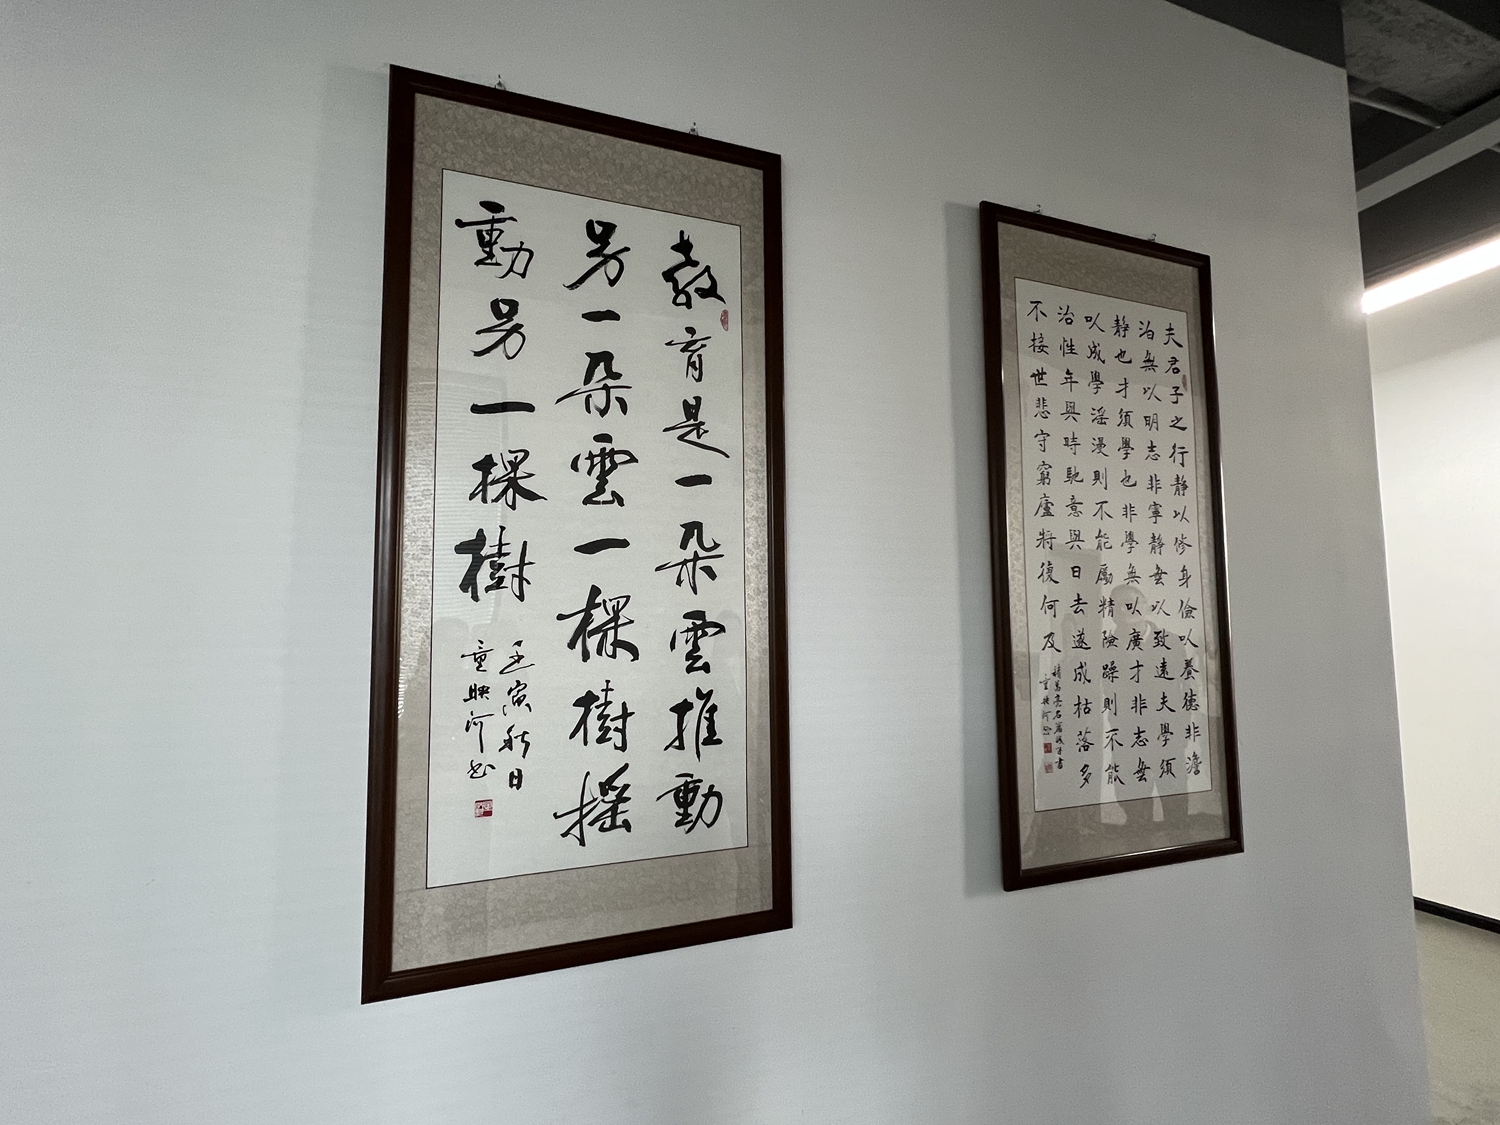 教育是一朵雲推動
另一朵雲一棵樹搖
動另一棵樹
壬寅秋日
童映河书
夫君子之行静以修身儉以養德非澹
泊無以明志非寧静無以致遠夫學須
静也才須學也非學無以廣才非志無
以成學滛漫則不能勵精險躁則不能
治性年與時馳意與日去遂成枯落多
不接世悲守窮廬将復何及
諸葛亮名篇誡子書
童映河书